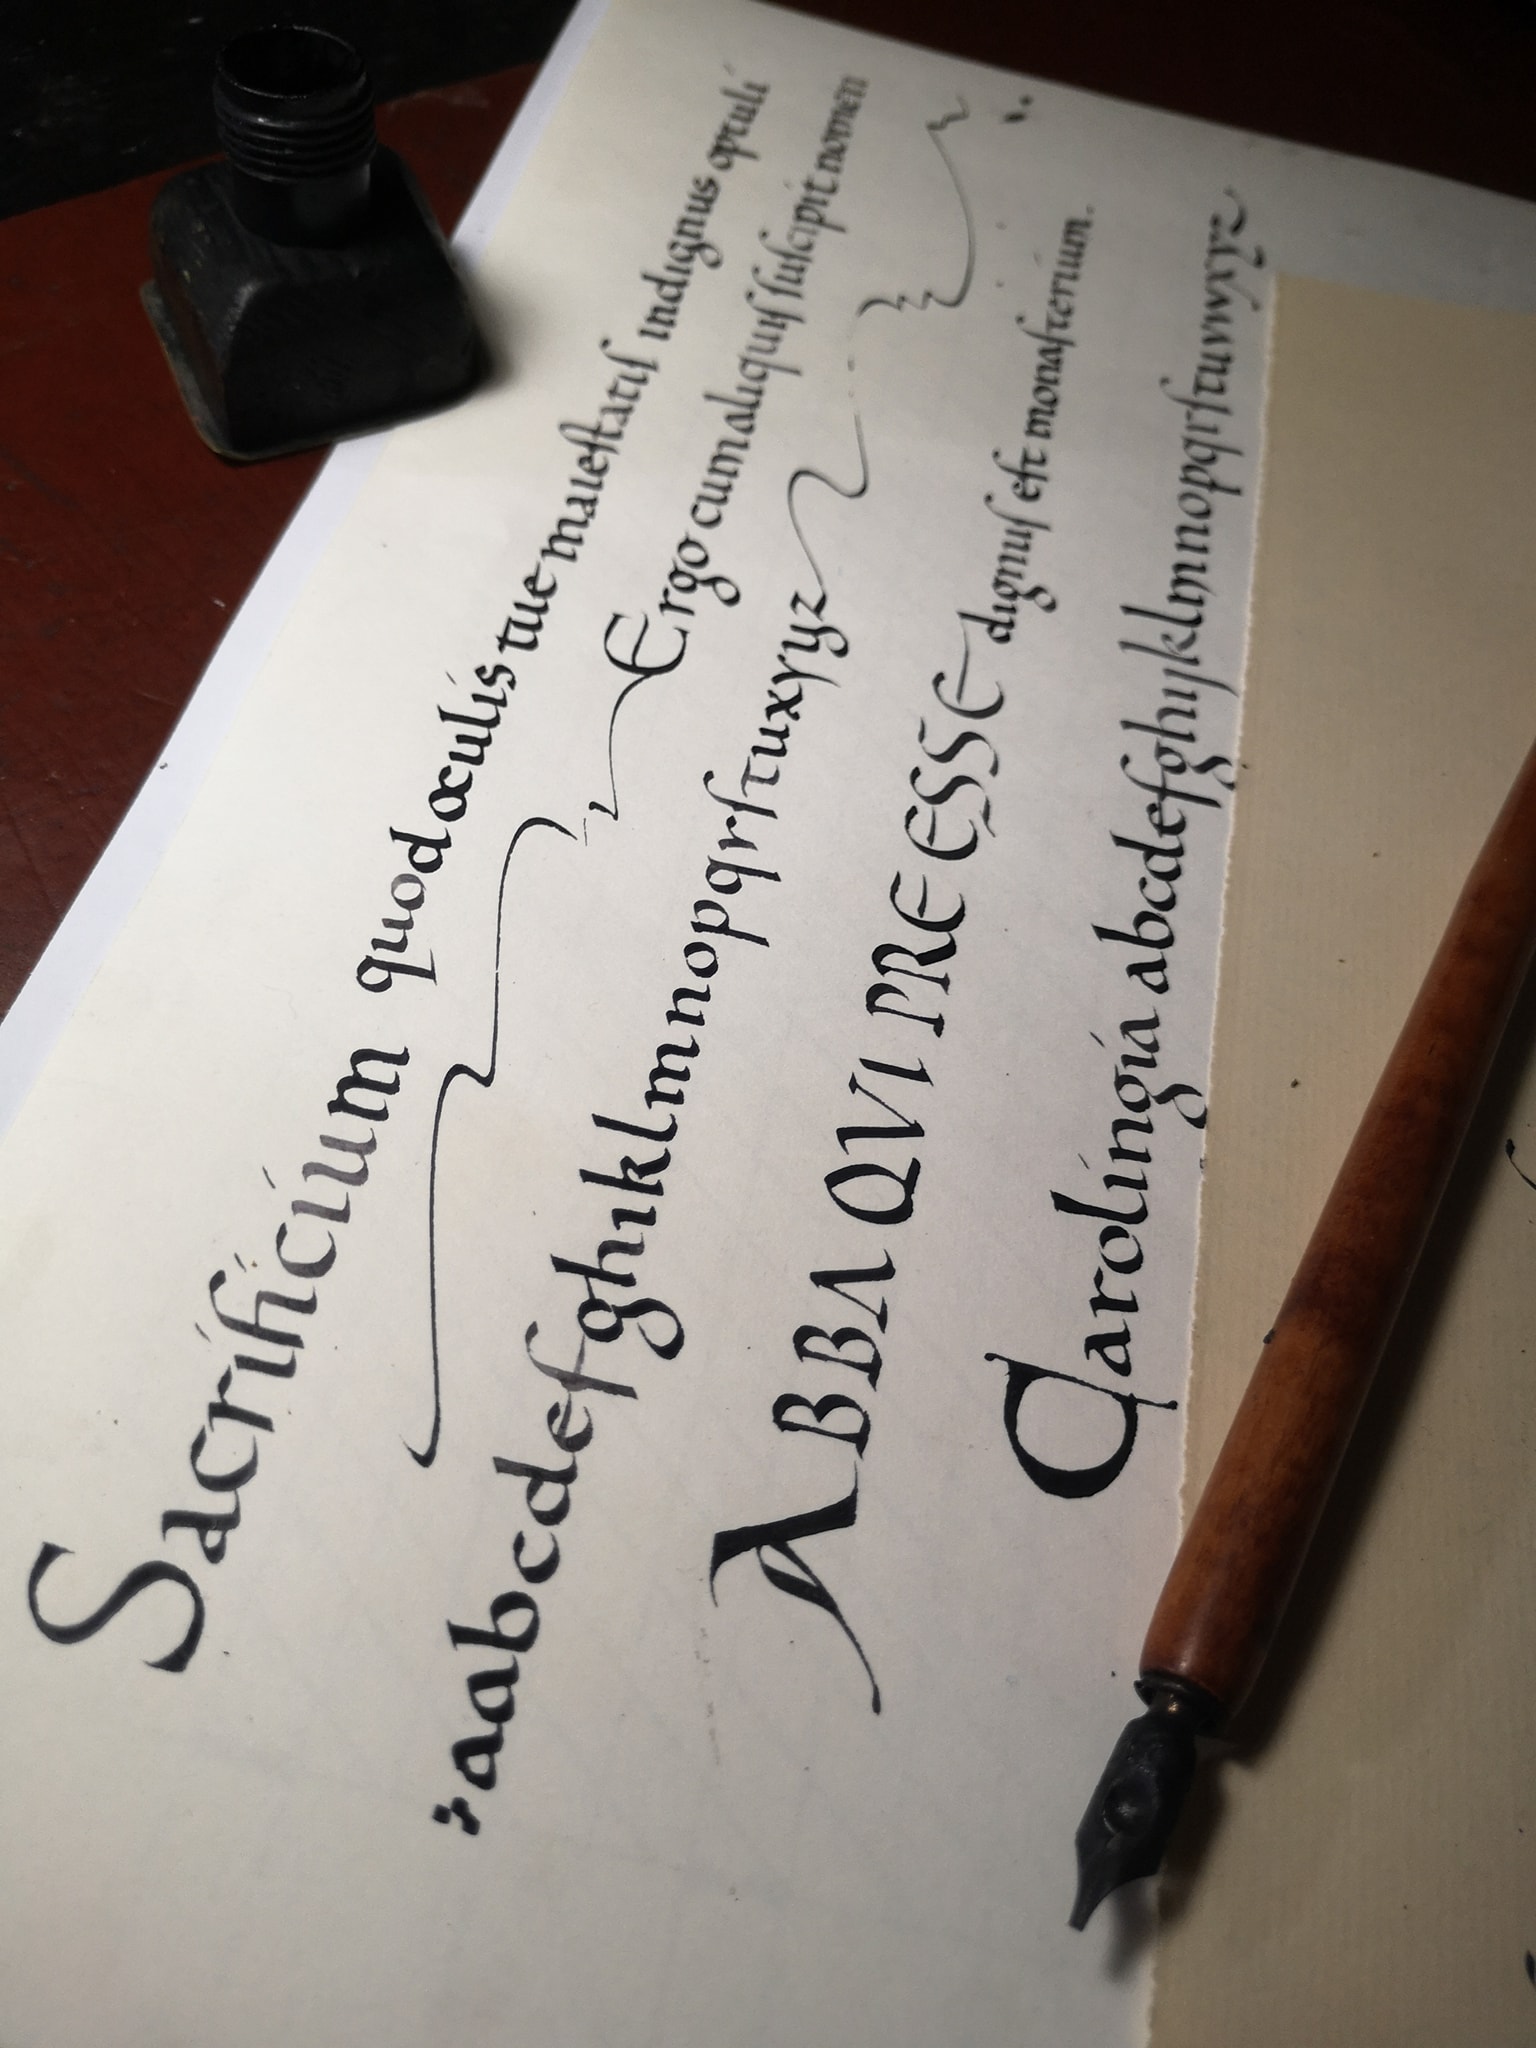 Sacrificium quod oculis tue maieſtatiſ indignus optuli
Ergo cum aliquiſ ſuſcipit nomen
aabcdefghiklmnopqrſtuxyyz
ABBA QVI PREESSE dignuſ eſt monaſterium.
Carolingia abcdefghijklmnopqrſtuvwxyz